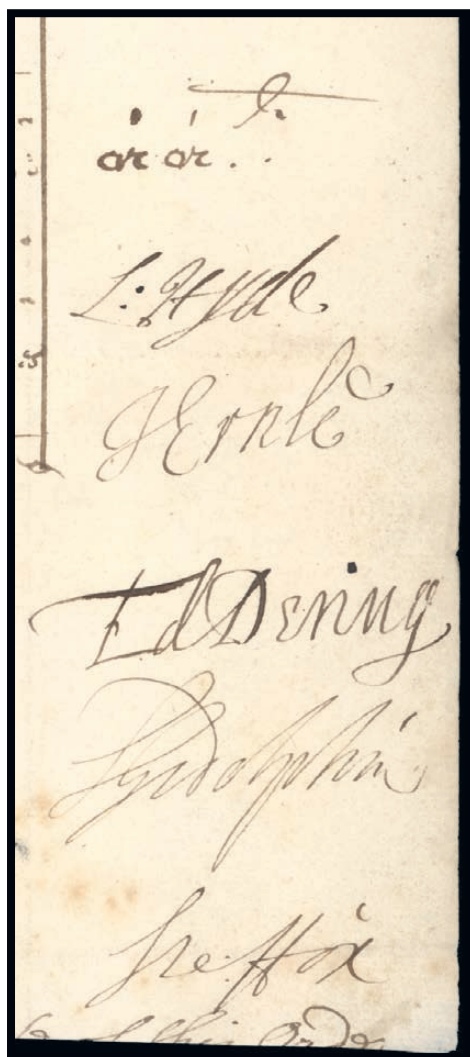 L: Hyde
J Ernle
Ed Dering
SGodolphin
Ste: ffox